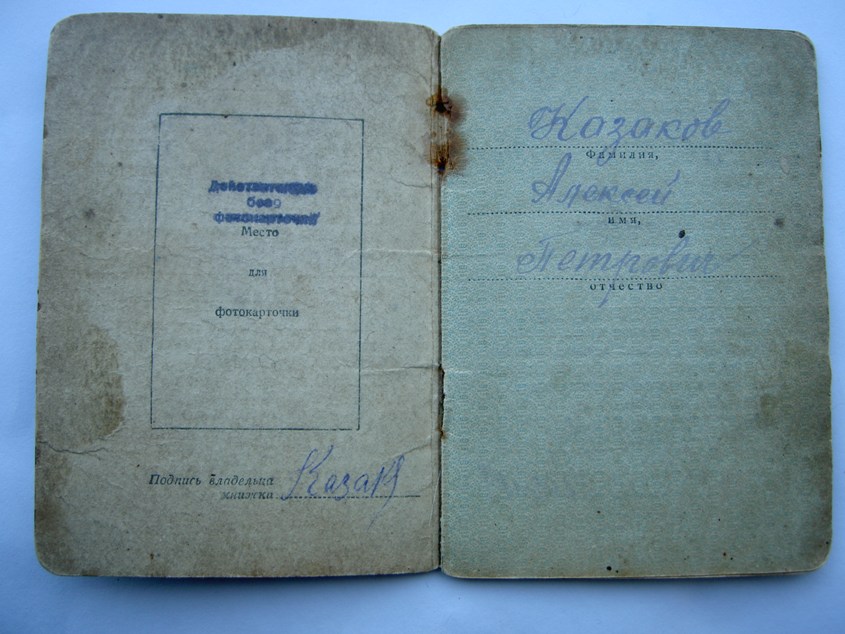 Действительно
без
фотокарточки
Место
для
фотокарточки
Подпись владельца
книжки Казак
Казаков
Фамилия,
Алексей
имя,
Петрович
отчество